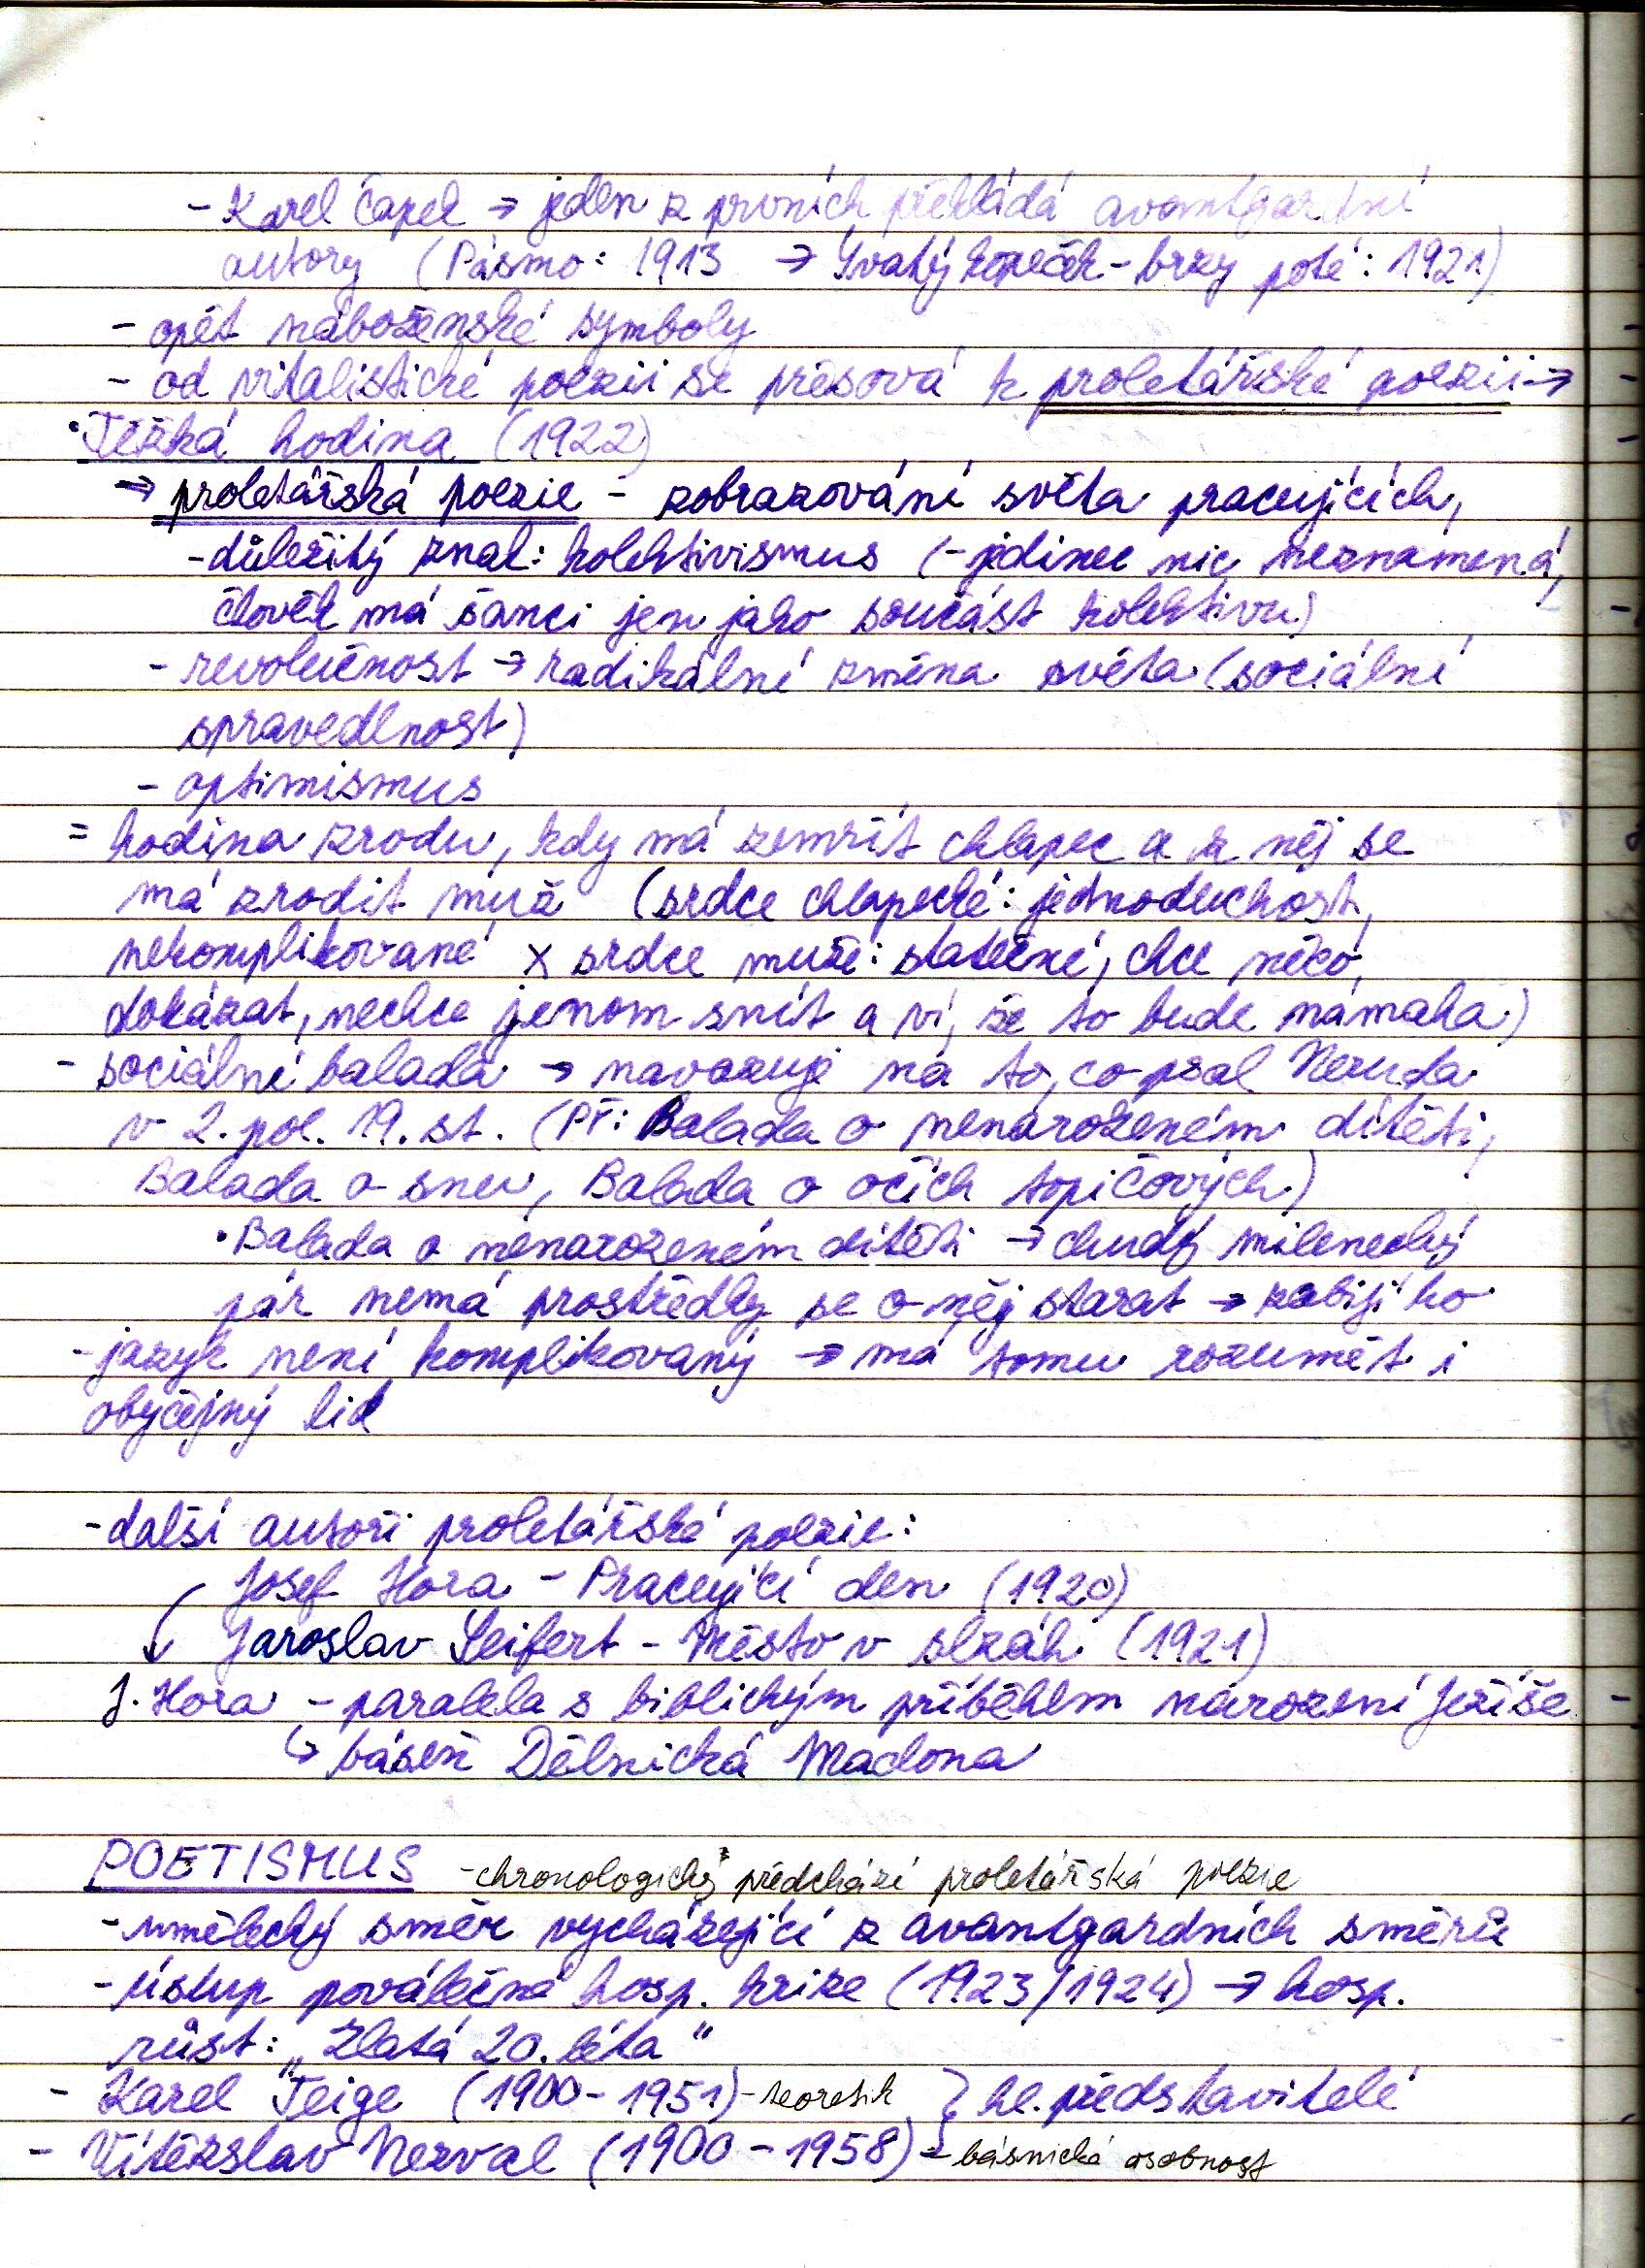 - Karel Čapek → jeden z prvních překládá avantgardní
autory (Pásmo: 1913 → Svatý kopeček - brzy poté: 1921)
- opět náboženské symboly
- od vitalistické poezii se přesová k proletářské poezii →
• Těžká hodina (1922)
→ proletářská poezie - zobrazování světa pracujících,
- důležitý znak: kolektivismus (- jedinec nic neznamená,
člověk má šanci jen jako součást kolektivu)
- revolučnost → radikální změna světa (sociální
spravedlnost)
- optimismus
= hodina zrodu, kdy má zemřít chlapec a z něj se
má zrodit muž (srdce chlapecké: jednoduchost,
nekomplikované x srdce muže: statečné, chce něco
dokázat, nechce jenom snít a ví, že to bude námaha)
- sociální balada → navazuje na to, co psal Neruda
v 2. pol. 19. st. (Př: Balada o nenarozeném dítěti,
Balada o snu, Balada o očích topičových)
• Balada o nenarozeném dítěti → chudý milenecký
pár nemá prostředky se o něj starat → zabijí ho
- jazyk není komplikovaný → má tomu rozumět i
obyčejný lid
- další autoři proletářské poezie:
Josef Hora - Pracující den (1920)
Jaroslav Seifert - Město v slzách (1921)
J. Hora - paralela s biblickým příběhem narození Ježíše
↳ báseň Dělnická Madona
POETISMUS - chronologicky předchází proletářská poezie
- umělecký směr vycházející z avantgardních směrů
- ústup poválečné hosp. krize (1923/1924) → hosp.
růst: „Zlatá 20. léta"
- Karel Teige (1900 - 1951) - teoretik } hl. představitelé
- Vítězslav Nezval (1900 - 1958) - básnická osobnost